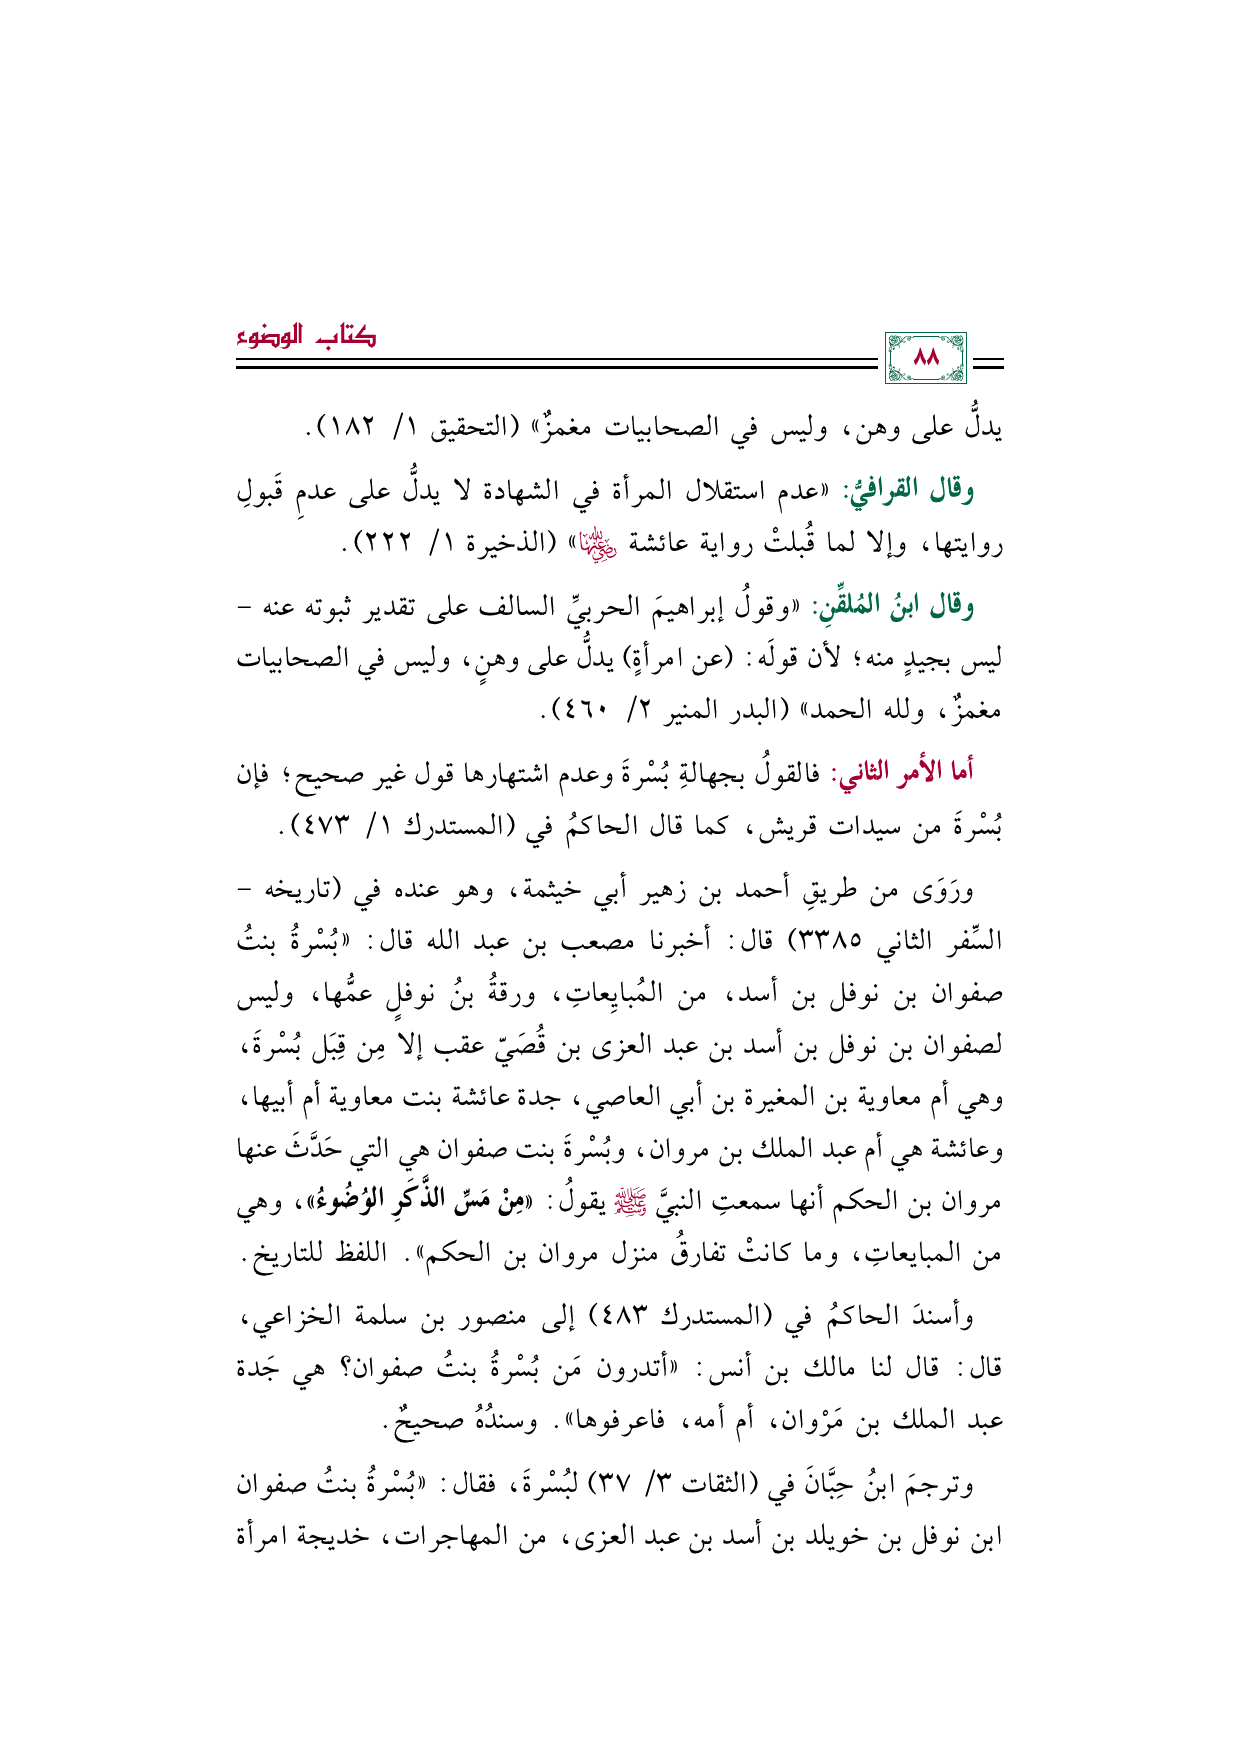 كتاب الوضوء
٨٨
يدلُّ على وهن، وليس في الصحابيات مغمزٌ» (التحقيق ١/ ١٨٢).
وقال القرافيُّ: «عدم استقلال المرأة في الشهادة لا يدلُّ على عدمِ قَبولِ
روايتها، وإلا لما قُبلتْ رواية عائشة رضي الله عنها» (الذخيرة ١/ ٢٢٢).
وقال ابنُ المُلقِّنِ: «وقولُ إبراهيمَ الحربيِّ السالف على تقدير ثبوته عنه -
ليس بجيدٍ منه؛ لأن قولَه: (عن امرأةٍ) يدلُّ على وهنٍ، وليس في الصحابيات
مغمزٌ، ولله الحمد» (البدر المنير ٢/ ٤٦٠).
أما الأمر الثاني: فالقولُ بجهالةِ بُسْرةَ وعدم اشتهارها قول غير صحيح؛ فإن
بُسْرةَ من سيدات قريش، كما قال الحاكمُ في (المستدرك ١/ ٤٧٣).
ورَوَى من طريقِ أحمد بن زهير أبي خيثمة، وهو عنده في (تاريخه -
السِّفر الثاني ٣٣٨٥) قال: أخبرنا مصعب بن عبد الله قال: «بُسْرةُ بنتُ
صفوان بن نوفل بن أسد، من المُبايِعاتِ، ورقةُ بنُ نوفلٍ عمُّها، وليس
لصفوان بن نوفل بن أسد بن عبد العزى بن قُصَيّ عقب إلا مِن قِبَل بُسْرةَ،
وهي أم معاوية بن المغيرة بن أبي العاصي، جدة عائشة بنت معاوية أم أبيها،
وعائشة هي أم عبد الملك بن مروان، وبُسْرةَ بنت صفوان هي التي حَدَّثَ عنها
مروان بن الحكم أنها سمعتِ النبيَّ ﷺ يقولُ: «مِنْ مَسِّ الذَّكَرِ الوُضُوءُ»، وهي
من المبايعاتِ، وما كانتْ تفارقُ منزل مروان بن الحكم». اللفظ للتاريخ.
وأسندَ الحاكمُ في (المستدرك ٤٨٣) إلى منصور بن سلمة الخزاعي،
قال: قال لنا مالك بن أنس: «أتدرون مَن بُسْرةُ بنتُ صفوان؟ هي جَدة
عبد الملك بن مَرْوان، أم أمه، فاعرفوها». وسندُهُ صحيحٌ.
وترجمَ ابنُ حِبَّانَ في (الثقات ٣/ ٣٧) لبُسْرةَ، فقال: «بُسْرةُ بنتُ صفوان
ابن نوفل بن خويلد بن أسد بن عبد العزى، من المهاجرات، خديجة امرأة